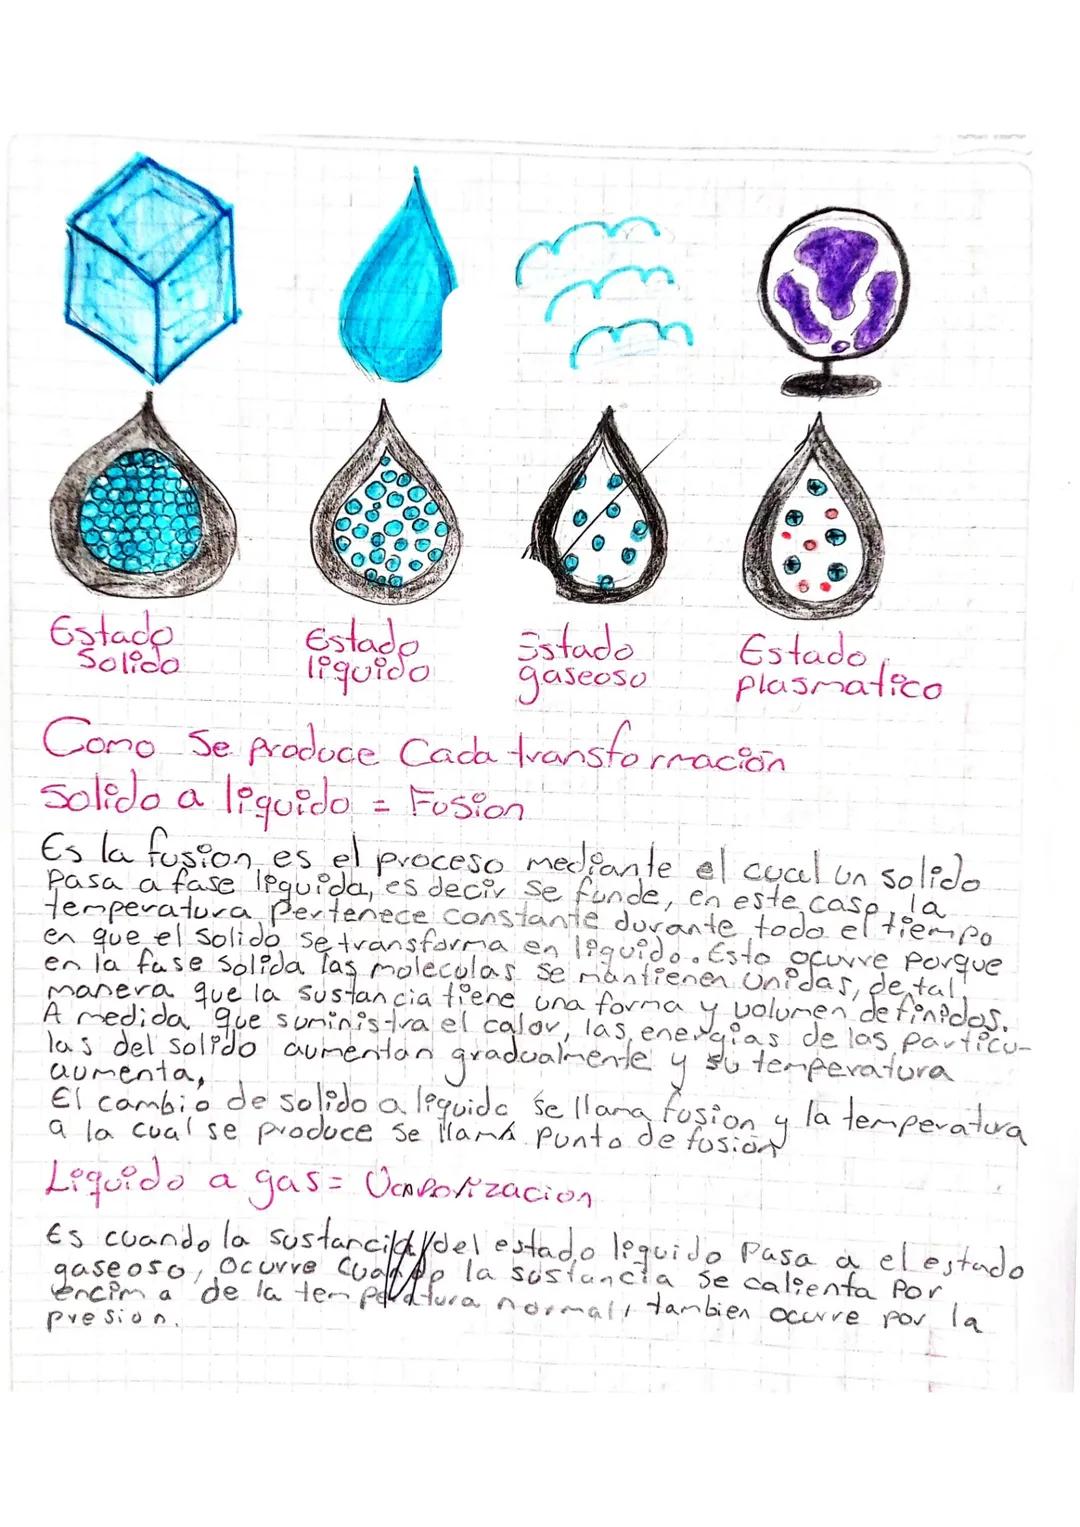 Estado
Solido
Estado
liquido
Estado
gaseoso
Estado
plasmatico
Como Se produce Cada transformación
Solido a liquido = Fusion
Es la fusion es el proceso mediante el cual un solido
Pasa a fase liquida, es decir Se funde, en este caso, la
temperatura Pertenece constante durante todo el tiempo
en que el Solido Se transforma en liquido. Esto ocurre porque
en la fase Solida las moleculas se mantienen unidas, de tal
manera que la sustancia tiene una forma y volumen definidos.
A medida que suministra el calor, las energias de las particu-
las del solido aumentan gradualmente y su temperatura
aumenta,
El cambio de solido a liquido se llama fusion y la temperatura
a la cual se produce Se llama Punto de fusión
Liquido a gas= Vaporizacion
Es cuando la sustancia del estado liquido Pasa a el estado
gaseoso, ocurre cuando la sustancia se calienta Por
encima de la temperatura normal, tambien ocurre por la
presion.